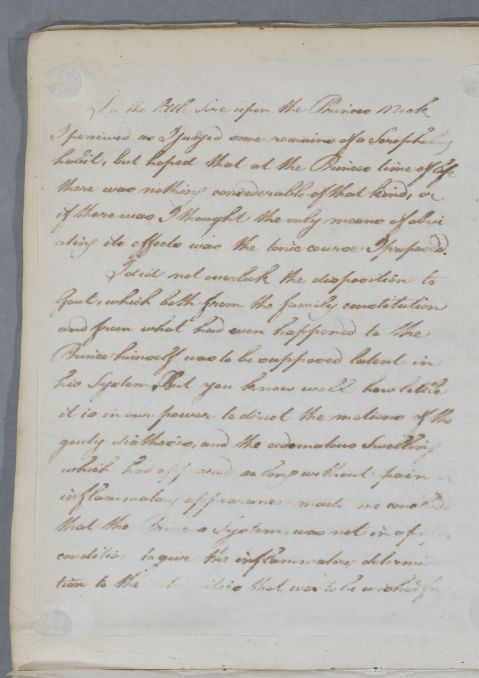 In the little Sore upon the Princes Neck
I perceived as I judged some remains of a Scrophulous
habit, but hoped that at the Princes time of life
there was nothing considerable of that kind, or
if there was I thought the only means of obvi
ating its effects was the tonic course I proposed.
I did not overlook the disposition to
Gout, which both from the family constitution
and from what had even happened to the
Prince himself was to be supposed latent in
his System, But you know well how little
it is in our power to direct the motions of the
gouty diathesis, and the oedematous Swelling
which had appeared so long without pain or
inflammatory appearances made me conclude
that the Princes System was not in a
condition to give the inflammatory determi
tion to the extremities that was to be wished for